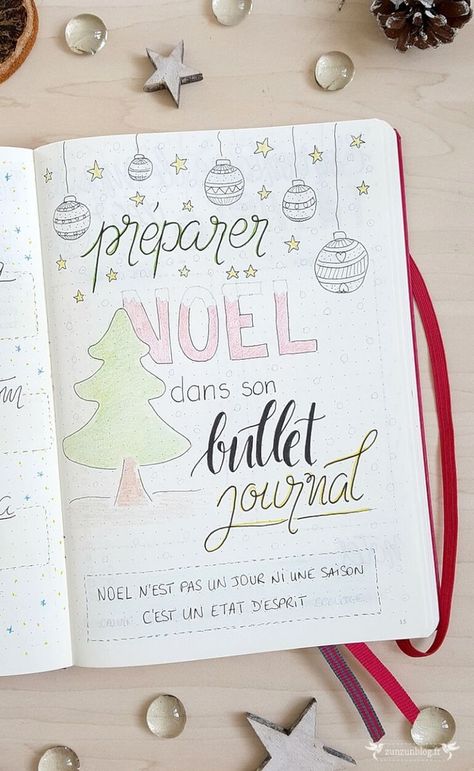 préparer
NOËL
dans son
bullet
journal
NOEL N'EST PAS UN JOUR NI UNE SAISON
C'EST UN ETAT D'ESPRIT
15
zunzunblog.fr